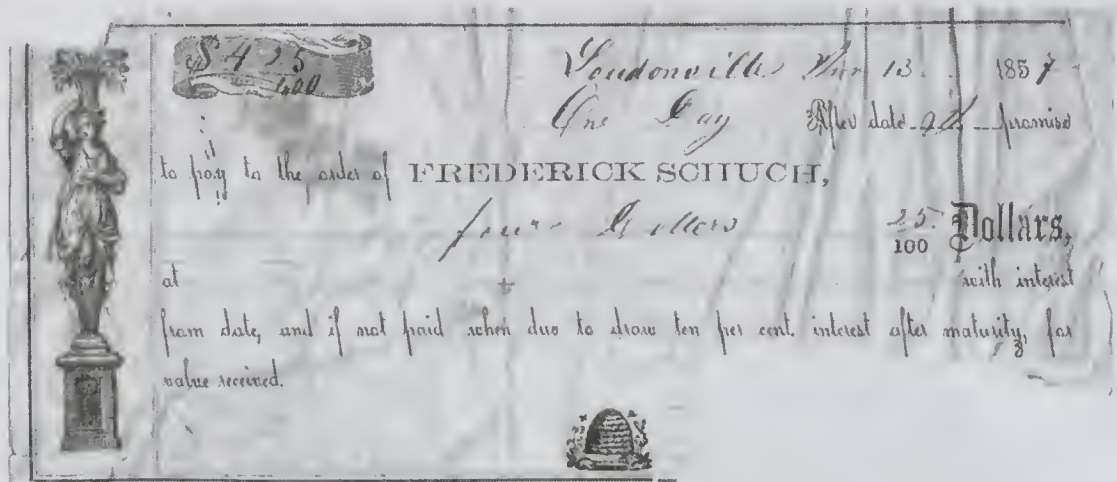 $ 4 25
100
Loudonville 13 1857
One Day After date I promise
to pay to the order of FREDERICK SCHUCH,
four Dollers 25/100 Dollars,
at with interest
from date, and if not paid when due to draw ten per cent. interest after maturity, for
value received.